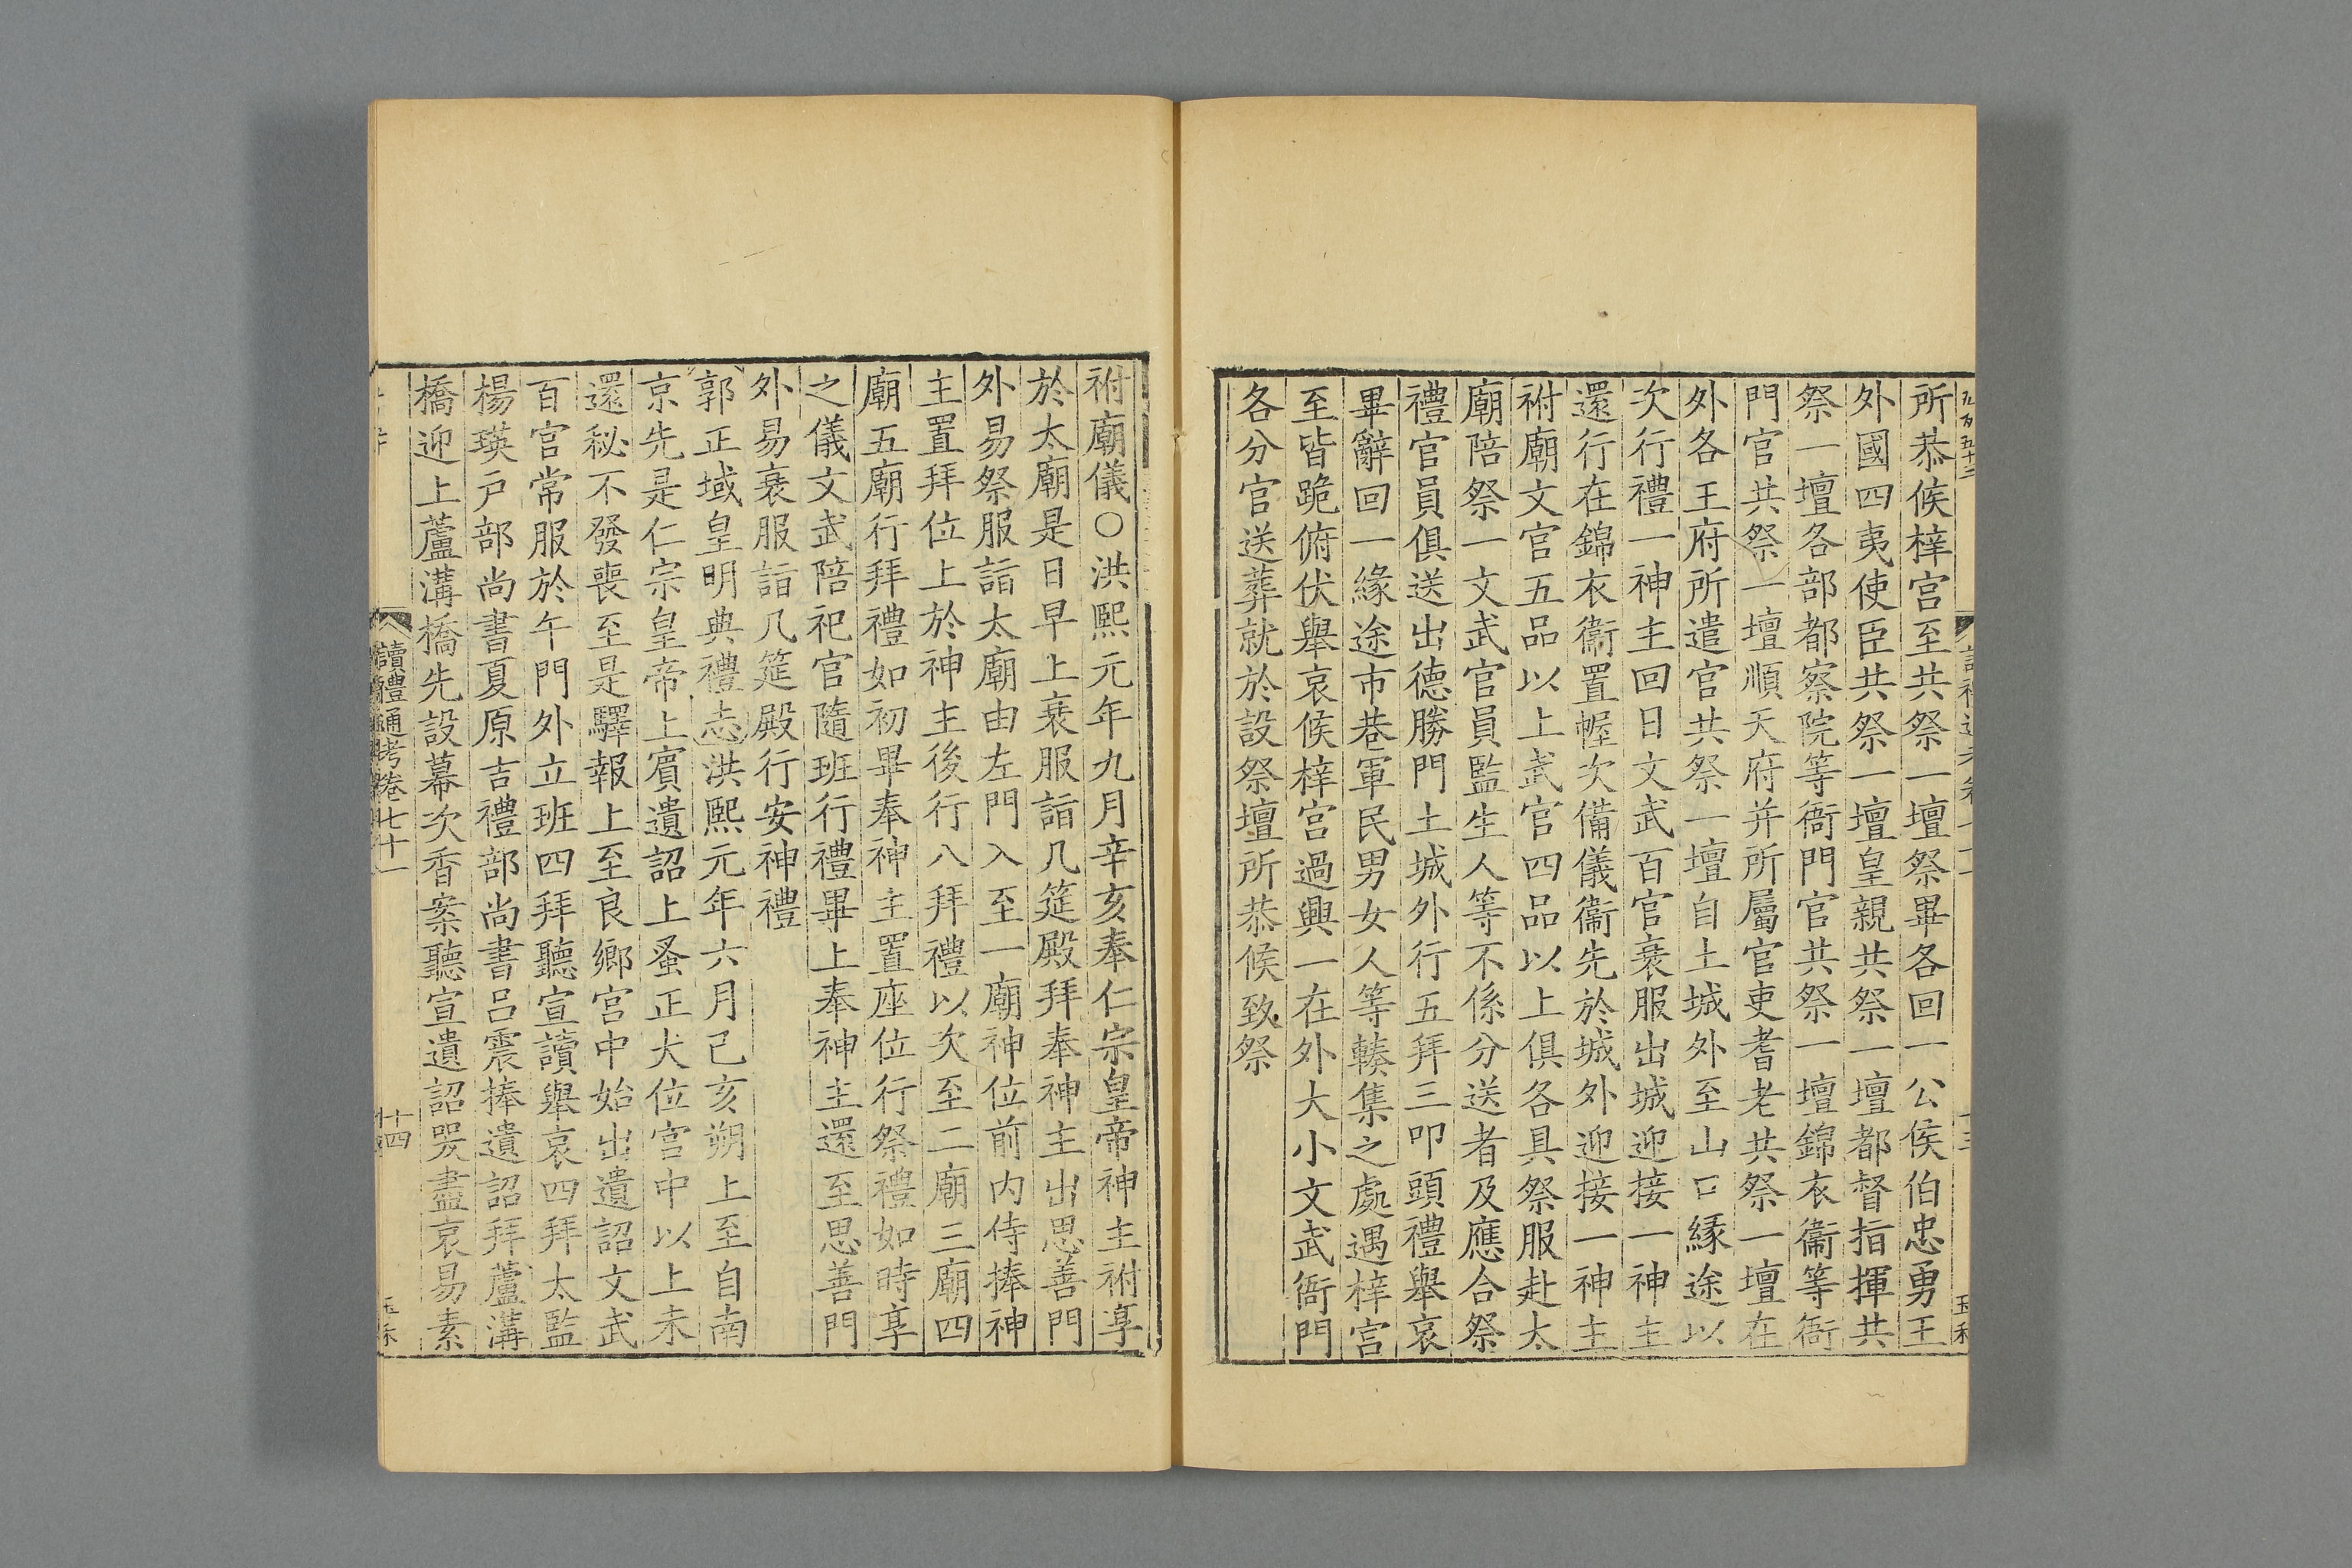 所恭候梓宮至共祭一壇祭畢各回一公侯伯忠勇王
外國四夷使臣共祭一壇皇親共祭一壇都督指揮共
祭一壇各部都察院等衙門官共祭一壇錦衣衞等衙
門官共祭一壇順天府并所屬官吏耆老共祭一壇在
外各王府所遣官共祭一壇自土城外至山口緣途以
次行禮一神主回日文武百官衰服出城迎接一神主
還行在錦衣衞置幄次備儀衞先於城外迎接一神主
祔廟文官五品以上武官四品以上俱各具祭服赴太
廟陪祭一文武官員監生人等不係分送者及應合祭
禮官員俱送出德勝門土城外行五拜三叩頭禮舉哀
畢辭回一緣途市巷軍民男女人等輳集之處遇梓宮
至皆跪俯伏舉哀候梓宮過興一在外大小文武衙門
各分官送葬就於設祭壇所恭候致祭
祔廟儀○洪熙元年九月辛亥奉仁宗皇帝神主祔享
於太廟是日早上衰服詣几筵殿拜奉神主出思善門
外易祭服詣太廟由左門入至一廟神位前內侍捧神
主置拜位上於神主後行八拜禮以次至二廟三廟四
廟五廟行拜禮如初畢奉神主置座位行祭禮如時享
之儀文武陪祀官隨班行禮畢上奉神主還至思善門
外易衰服詣几筵殿行安神禮
郭正域皇明典禮志洪熙元年六月己亥朔上至自南
京先是仁宗皇帝上賓遺詔上蚤正大位宮中以上未
還秘不發喪至是驛報上至良鄉宮中始出遺詔文武
百官常服於午門外立班四拜聽宣讀舉哀四拜太監
楊瑛戸部尚書夏原吉禮部尚書呂震捧遺詔拜蘆溝
橋迎上蘆溝橋先設幕次香案聽宣遺詔哭盡哀易素
讀禮通考卷七十一
十四